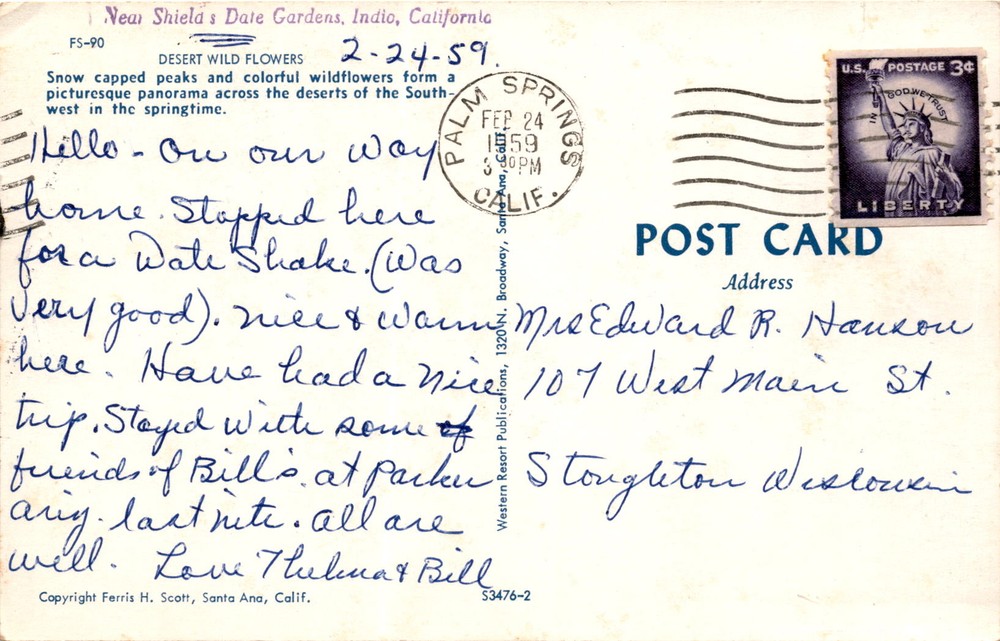 Near Shield's Date Gardens, Indio, California
FS-90
DESERT WILD FLOWERS
2-24-59.
Snow capped peaks and colorful wildflowers form a
picturesque panorama across the deserts of the South-
west in the springtime.
Hello - On our way
home. Stopped here
for a Date Shake. (Was
Very good). Nice & Warm
here. Have had a Nice
trip. Stayed With some of
friends of Bill's at Parker
Ariz. last nite. All are
well. Love Thelma & Bill
Copyright Ferris H. Scott, Santa Ana, Calif.
S3476-2
Western Resort Publications, 1320 N. Broadway, Santa Ana, Calif.
PALM SPRINGS
FEB 24
1959
3 30 PM
CALIF.
U.S. POSTAGE 3¢
IN GOD WE TRUST
LIBERTY
POST CARD
Address
Mrs Edward R. Hanson
107 West Main St.
Stoughton Wisconsin